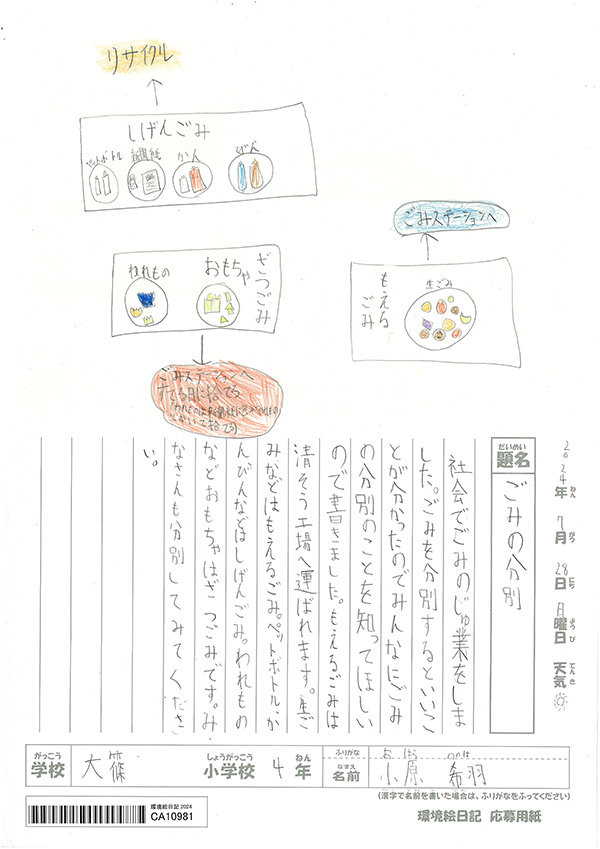 リサイクル
しげんごみ
ペットボトル
新聞紙
かん
びん
ごみステーションへ
ざつごみ
おもちゃ
われもの
もえるごみ
生ごみ
ごみステーションへ
すてる日に捨てる
2024年 7月 28日 月曜日 天気
ねん がつ にち ようび てんき
だいめい
題名
ごみの分別
社会でごみのじゅ業をしま
した。ごみを分別するといいこ
とが分かったのでみんなにごみ
の分別のことを知ってほしい
ので書きました。もえるごみは
清そう工場へ運ばれます。生ご
みなどはもえるごみ。ペットボトル、か
んびんなどはしげんごみ。われもの
などおもちゃはざつごみです。み
なさんも分別してみてくださ
い。
がっこう しょうがっこう ねん ふりがな おはら
学校 大篠 小学校 4年 なまえ 名前 小原 希羽
(漢字で名前を書いた場合は、ふりがなをふってください)
環境絵日記 2024
CA10981
環境絵日記 応募用紙